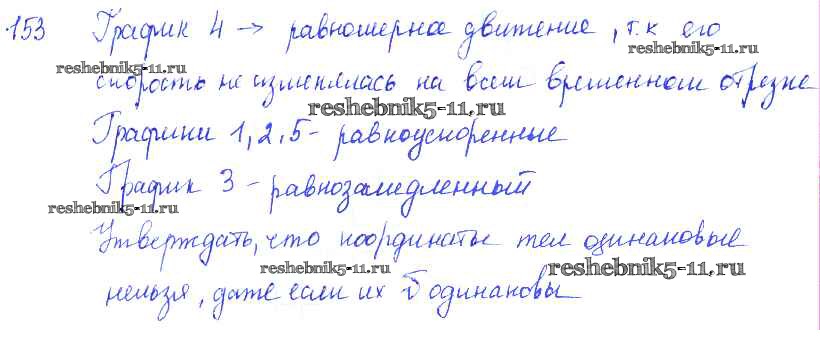 153 График 4 → равномерное движение, т.к его
reshebnik5-11.ru
скорость не изменялась на всем временном отрезке
reshebnik5-11.ru
reshebnik5-11.ru
Графики 1,2,5 - равноускоренные
График 3 - равнозамедленный
reshebnik5-11.ru
Утверждать, что координаты тел одинаковые
reshebnik5-11.ru
reshebnik5-11.ru
нельзя, даже если их v̄ одинаковы